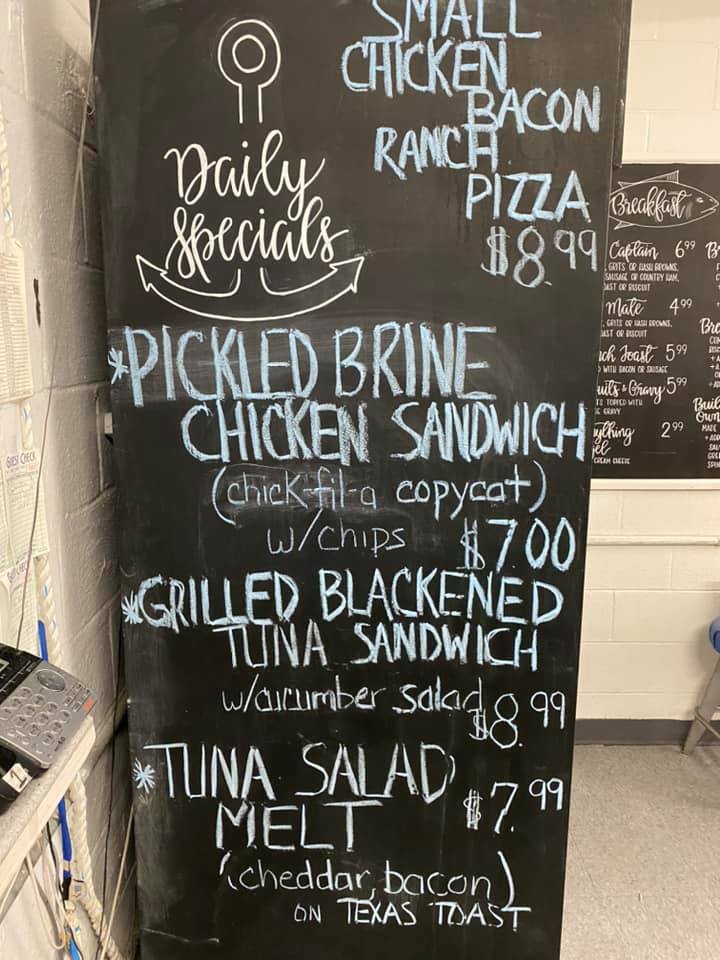 SMALL
CHICKEN
BACON
RANCH
PIZZA
$8.99
Daily
Specials
*PICKLED BRINE
CHICKEN SANDWICH
(chick-fil-a copycat)
w/CHIPS $7.00
*GRILLED BLACKENED
TUNA SANDWICH
w/cucumber salad $8.99
*TUNA SALAD
MELT $7.99
(cheddar, bacon)
ON TEXAS TOAST
Breakfast
Captain 6.99
GRITS OR HASH BROWNS,
SAUSAGE OR COUNTRY HAM,
TOAST OR BISCUIT
Mate 4.99
GRITS OR HASH BROWNS,
TOAST OR BISCUIT
Toast 5.99
WITH BACON OR SAUSAGE
& Gravy 5.99
TOPPED WITH
GRAVY
2.99
CREAM CHEESE
GUEST CHECK